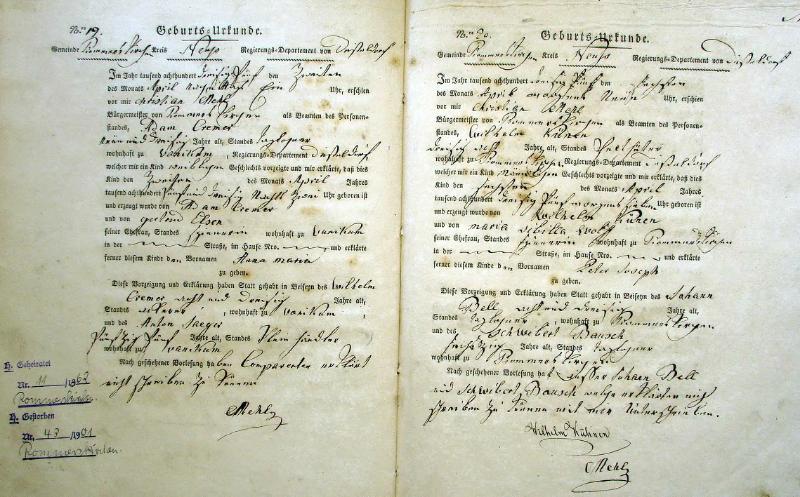 No 19. Geburts-Urkunde.
Gemeinde Rommerskirchen Kreis Neuss Regierungs-Departement von Düsseldorf
Im Jahr tausend achthundert dreißig fünf den Zweiten
des Monats April nachmittags Ein Uhr, erschien
vor mir Christian Mehl
Bürgermeister von Rommerskirchen als Beamten des Personen-
standes, Adam Cremer
dreißig Jahre alt, Standes Taglöhner
wohnhaft zu Vanikum, Regierungs-Departement Düsseldorf
welcher mir ein Kind weiblichen Geschlechts vorzeigte und mir erklärte, daß dies
Kind den Zweiten des Monats April Jahres
tausend achthundert fünf und dreißig Uhr geboren ist
und erzeugt wurde von Adam Cremer
und von Gertrud Esser
seiner Ehefrau, Standes wohnhaft zu Vanikum
in der Straße, im Hause Nro. und erklärte
ferner diesem Kinde den Vornamen Anna Maria
zu geben.
Diese Vorzeigung und Erklärung haben Statt gehabt in Beiseyn des Wilhelm
Cremer acht und dreißig Jahre alt,
Standes Ackerer, wohnhaft zu Vanikum
und des Anton Jaeger
fünfzig fünf Jahre alt, Standes Kleinhändler
wohnhaft zu Vanikum
Nach geschehener Vorlesung haben Comparenten erklärt
nicht schreiben zu können
Mehl
H. Geheiratet
Nr. 11 /1867
Rommerskirchen
H. Gestorben
Nr. 43 /1901
Rommerskirchen
No 20. Geburts-Urkunde.
Gemeinde Rommerskirchen Kreis Neuss Regierungs-Departement von Düsseldorf
Im Jahr tausend achthundert dreißig fünf den sechsten
des Monats April morgens Neun Uhr, erschien
vor mir Christian Mehl
Bürgermeister von Rommerskirchen als Beamten des Personen-
standes, Wilhelm Kühen
dreißig acht Jahre alt, Standes
wohnhaft zu Rommerskirchen, Regierungs-Departement Düsseldorf
welcher mir ein Kind männlichen Geschlechts vorzeigte und mir erklärte, daß dies
Kind den sechsten des Monats April Jahres
tausend achthundert dreißig fünf morgens Uhr geboren ist
und erzeugt wurde von Wilhelm Kühen
und von Maria Sibilla Wolff
seiner Ehefrau, Standes wohnhaft zu Rommerskirchen
in der Straße, im Hause Nro. und erklärte
ferner diesem Kinde den Vornamen Peter Joseph
zu geben.
Diese Vorzeigung und Erklärung haben Statt gehabt in Beiseyn des Johann
Bell acht und dreißig Jahre alt,
Standes Taglöhner, wohnhaft zu Rommerskirchen
und des Schwibert Bausch
sechszig Jahre alt, Standes Taglöhner
wohnhaft zu Rommerskirchen
Nach geschehener Vorlesung hat außer Johann Bell
und Schwibert Bausch welche erklärten nicht
schreiben zu können mit mir Unterschrieben.
Wilhelm Kühnen
Mehl